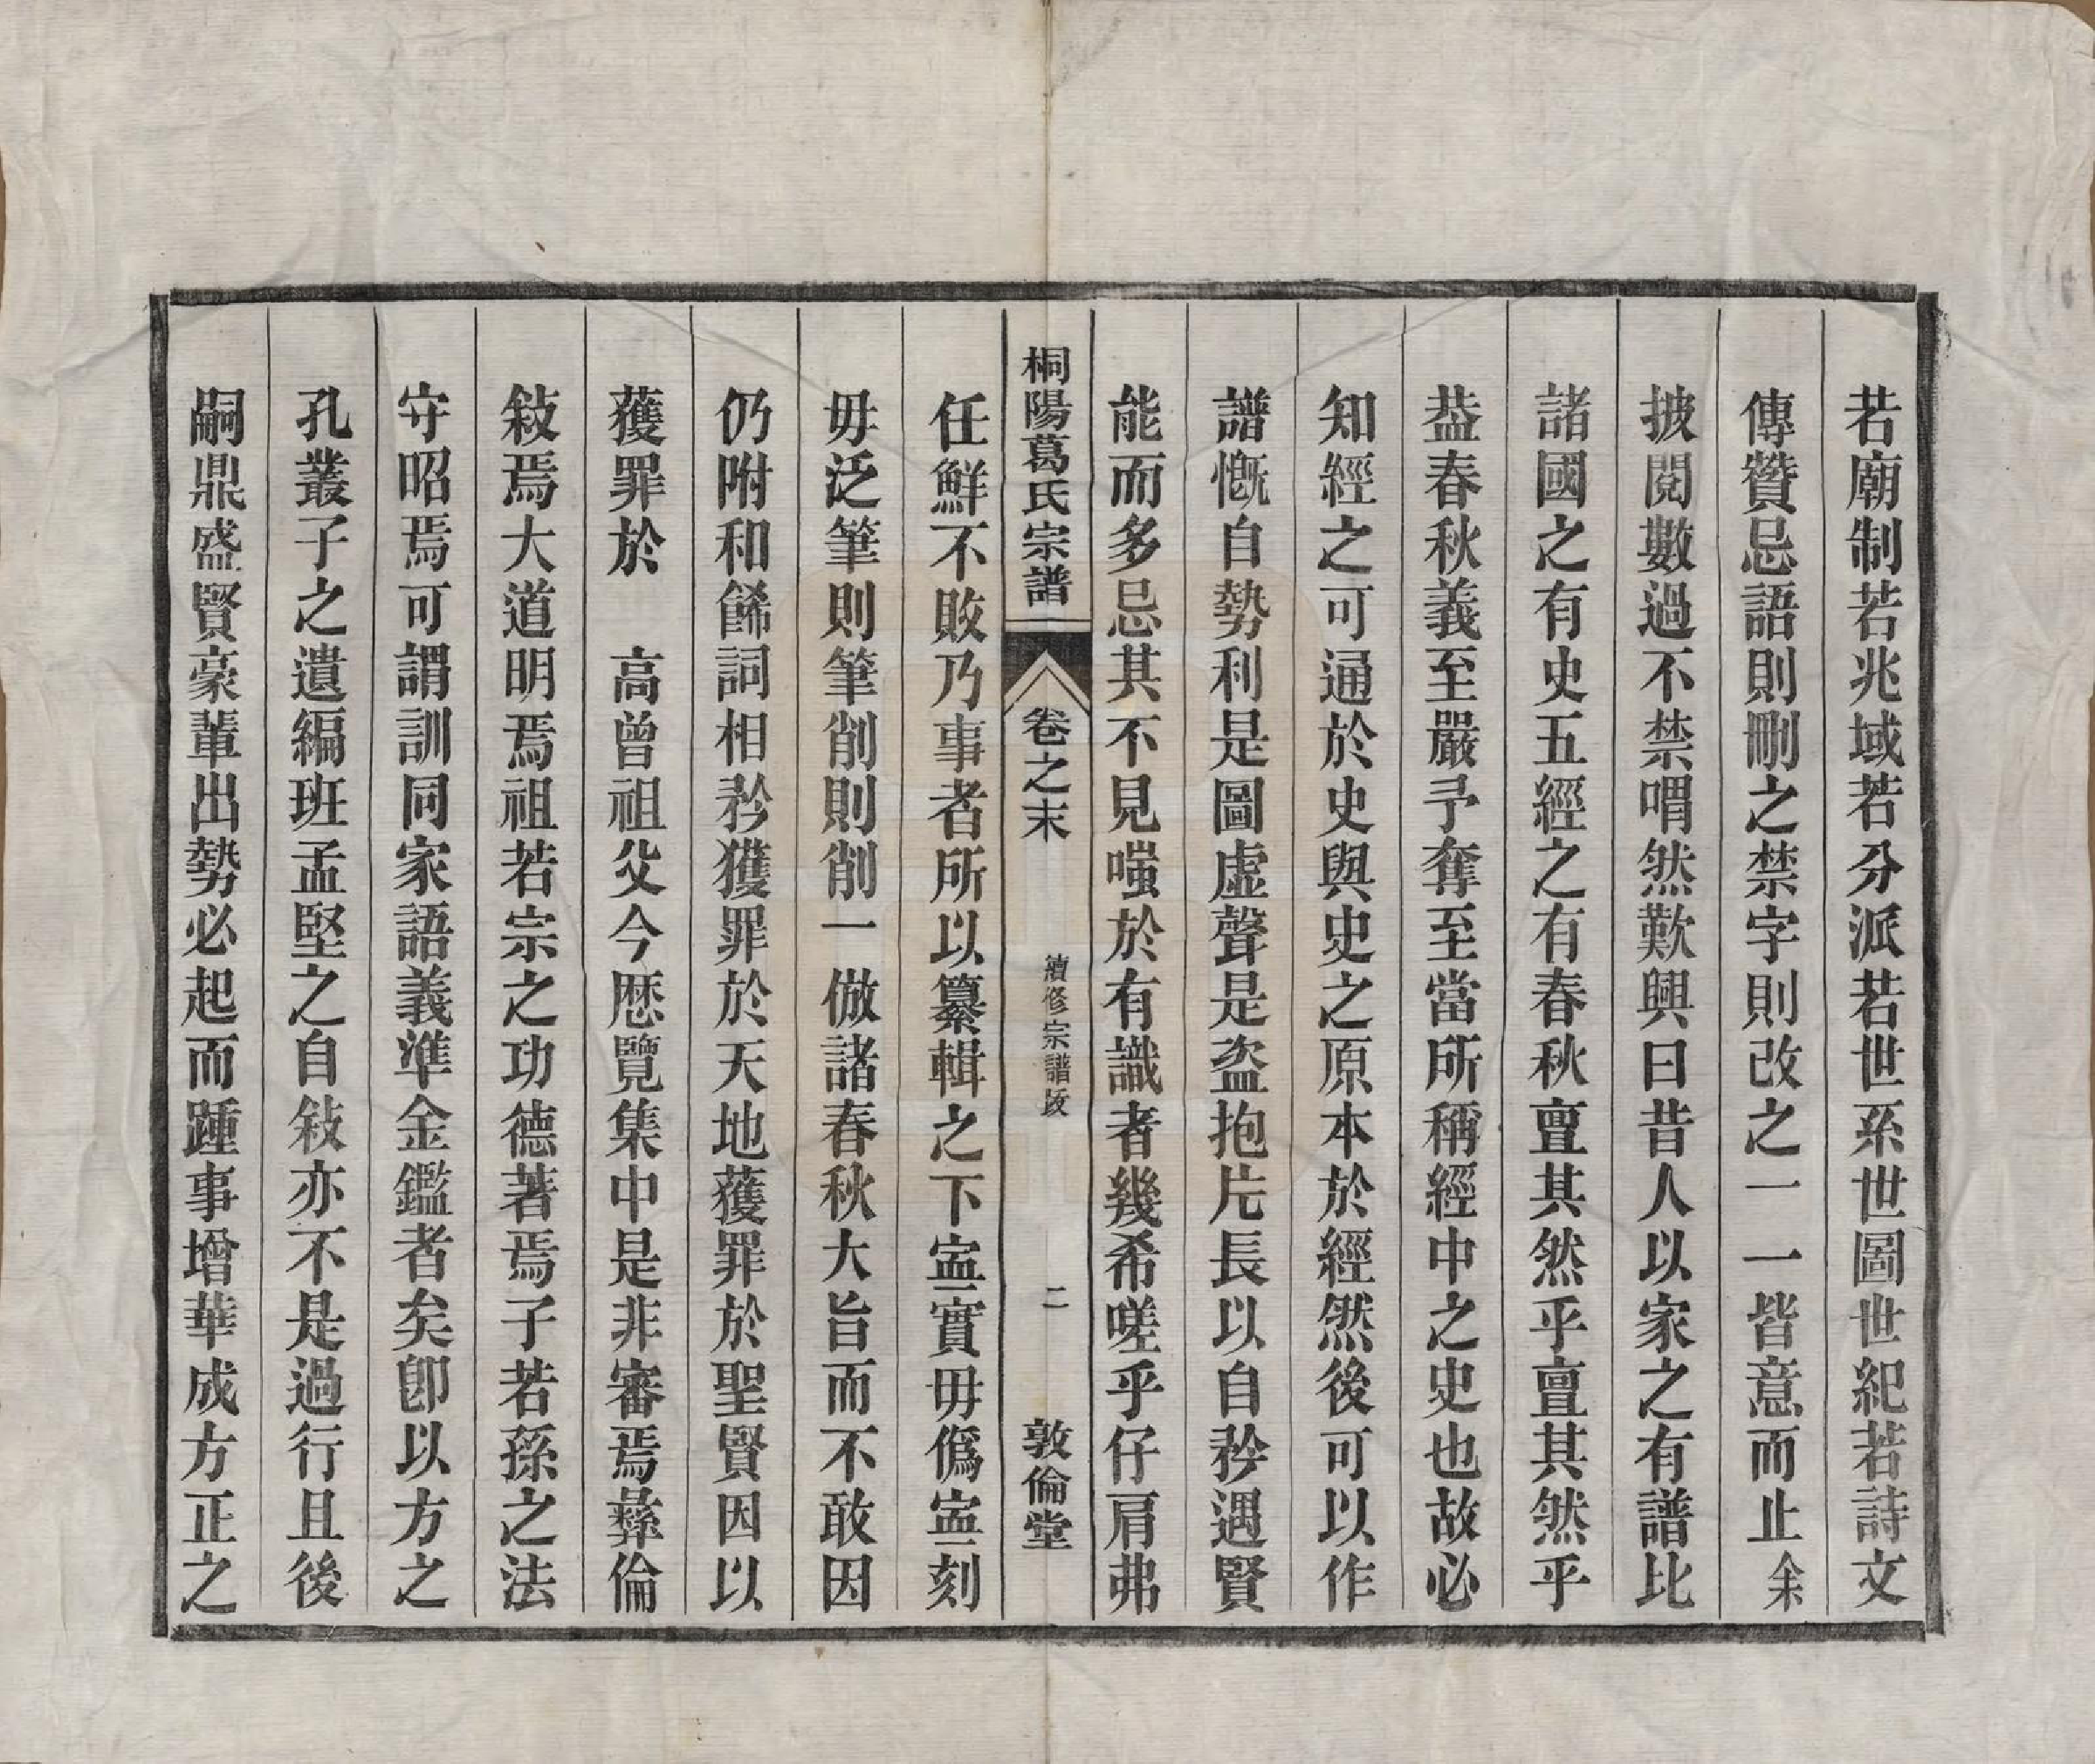 若廟制若兆域若分派若世系世圖世紀若詩文
傳贊忌語則刪之禁字則改之一一皆意而止余
披閱數過不禁喟然歎興曰昔人以家之有譜比
諸國之有史五經之有春秋亶其然乎亶其然乎
葢春秋義至嚴予奪至當所稱經中之史也故必
知經之可通於史與史之原本於經然後可以作
譜慨自勢利是圖虛聲是盜抱片長以自矜遇賢
能而多忌其不見嗤於有識者幾希嗟乎仔肩弗
桐陽葛氏宗譜 卷之末 續修宗譜跋 二 敦倫堂
任鮮不敗乃事者所以纂輯之下寍實毋僞寍刻
毋泛筆則筆削則削一倣諸春秋大旨而不敢因
仍附和餙詞相矜獲罪於天地獲罪於聖賢因以
獲罪於 高曾祖父今厯覽集中是非審焉彝倫
敍焉大道明焉祖若宗之功德著焉子若孫之法
守昭焉可謂訓同家語義準金鑑者矣卽以方之
孔叢子之遺編班孟堅之自敍亦不是過行且後
嗣鼎盛賢豪輩出勢必起而踵事增華成方正之